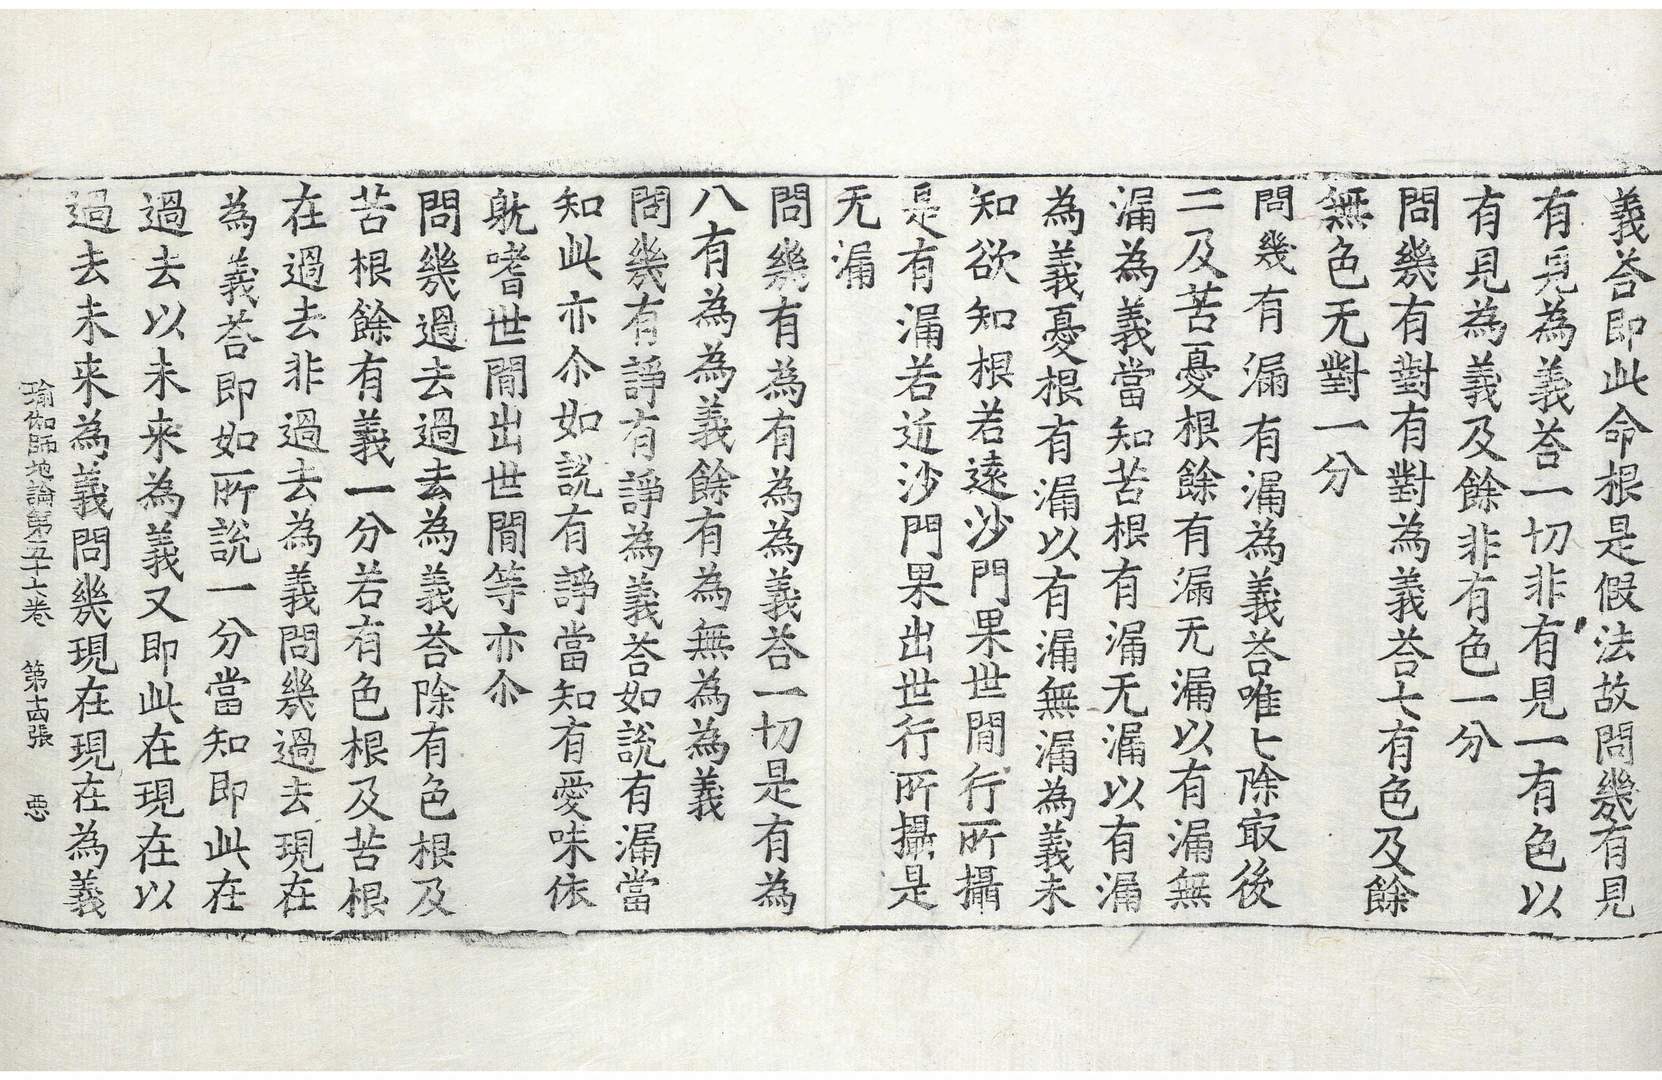 義荅即此命根是假法故問幾有見
有見為義荅一切非有見一有色以
有見為義及餘非有色一分
問幾有對有對為義荅七有色及餘
無色无對一分
問幾有漏有漏為義荅唯七除㝡後
二及苦憂根餘有漏无漏以有漏無
漏為義當知苦根有漏无漏以有漏
為義憂根有漏以有漏無漏為義未
知欲知根若遠沙門果世間行所攝
是有漏若近沙門果出世行所攝是
无漏
問幾有為有為為義荅一切是有為
八有為為義餘有為無為為義
問幾有諍有諍為義荅如說有漏當
知此亦尒如說有諍當知有愛味依
躭嗜世間出世間等亦尒
問幾過去過去為義荅除有色根及
苦根餘有義一分若有色根及苦根
在過去非過去為義問幾過去現在
為義荅即如所說一分當知即此在
過去以未来為義又即此在現在以
過去未来為義問幾現在現在為義
瑜伽師地論第五十七卷　第十四張　惡